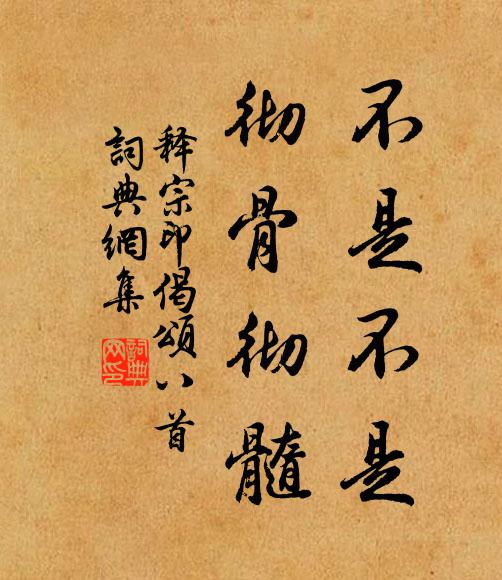 不是不是
彻骨彻髓
释宗印偈頌八首
詞典網集
詞典
网印